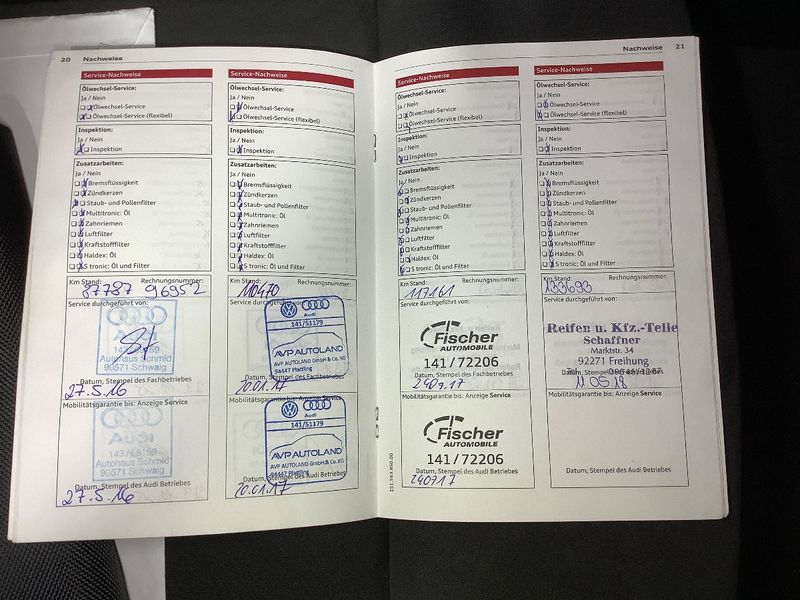 20 Nachweise
Service-Nachweise
Ölwechsel-Service:
Ja / Nein
Ölwechsel-Service
Ölwechsel-Service (flexibel)
Inspektion:
Ja / Nein
Inspektion
Zusatzarbeiten:
Ja / Nein
Bremsflüssigkeit
Zündkerzen
Staub- und Pollenfilter
Multitronic: Öl
Zahnriemen
Luftfilter
Kraftstofffilter
Haldex: Öl
S tronic: Öl und Filter
Km Stand: Rechnungsnummer:
87787 96952
Service durchgeführt von:
Audi
Autohaus Schmid
90571 Schwaig
Datum, Stempel des Fachbetriebes
27.5.16
Mobilitätsgarantie bis: Anzeige Service
Audi
Autohaus Schmid
90571 Schwaig
Datum, Stempel des Audi Betriebes
27.5.16
Service-Nachweise
Ölwechsel-Service:
Ja / Nein
Ölwechsel-Service
Ölwechsel-Service (flexibel)
Inspektion:
Ja / Nein
Inspektion
Zusatzarbeiten:
Ja / Nein
Bremsflüssigkeit
Zündkerzen
Staub- und Pollenfilter
Multitronic: Öl
Zahnriemen
Luftfilter
Kraftstofffilter
Haldex: Öl
S tronic: Öl und Filter
Km Stand: Rechnungsnummer:
110470
Service durchgeführt von:
Audi
141/51179
AVP AUTOLAND
AVP AUTOLAND GmbH & Co. KG
94447 Plattling
Datum, Stempel des Fachbetriebes
20.01.17
Mobilitätsgarantie bis: Anzeige Service
Audi
141/51179
AVP AUTOLAND
AVP AUTOLAND GmbH & Co. KG
94447 Plattling
Datum, Stempel des Audi Betriebes
20.01.17
Nachweise 21
Service-Nachweise
Ölwechsel-Service:
Ja / Nein
Ölwechsel-Service
Ölwechsel-Service (flexibel)
Inspektion:
Ja / Nein
Inspektion
Zusatzarbeiten:
Ja / Nein
Bremsflüssigkeit
Zündkerzen
Staub- und Pollenfilter
Multitronic: Öl
Zahnriemen
Luftfilter
Kraftstofffilter
Haldex: Öl
S tronic: Öl und Filter
Km Stand: Rechnungsnummer:
117161
Service durchgeführt von:
Fischer
AUTOMOBILE
141/72206
Datum, Stempel des Fachbetriebes
Mobilitätsgarantie bis: Anzeige Service
Fischer
AUTOMOBILE
141/72206
Datum, Stempel des Audi Betriebes
Service-Nachweise
Ölwechsel-Service:
Ja / Nein
Ölwechsel-Service
Ölwechsel-Service (flexibel)
Inspektion:
Ja / Nein
Inspektion
Zusatzarbeiten:
Ja / Nein
Bremsflüssigkeit
Zündkerzen
Staub- und Pollenfilter
Multitronic: Öl
Zahnriemen
Luftfilter
Kraftstofffilter
Haldex: Öl
S tronic: Öl und Filter
Km Stand: Rechnungsnummer:
133693
Service durchgeführt von:
Reifen u. Kfz.-Teile
Schaffner
Marktstr. 34
92271 Freihung
Datum, Stempel des Fachbetriebes
11 05 18
Mobilitätsgarantie bis: Anzeige Service
Datum, Stempel des Audi Betriebes